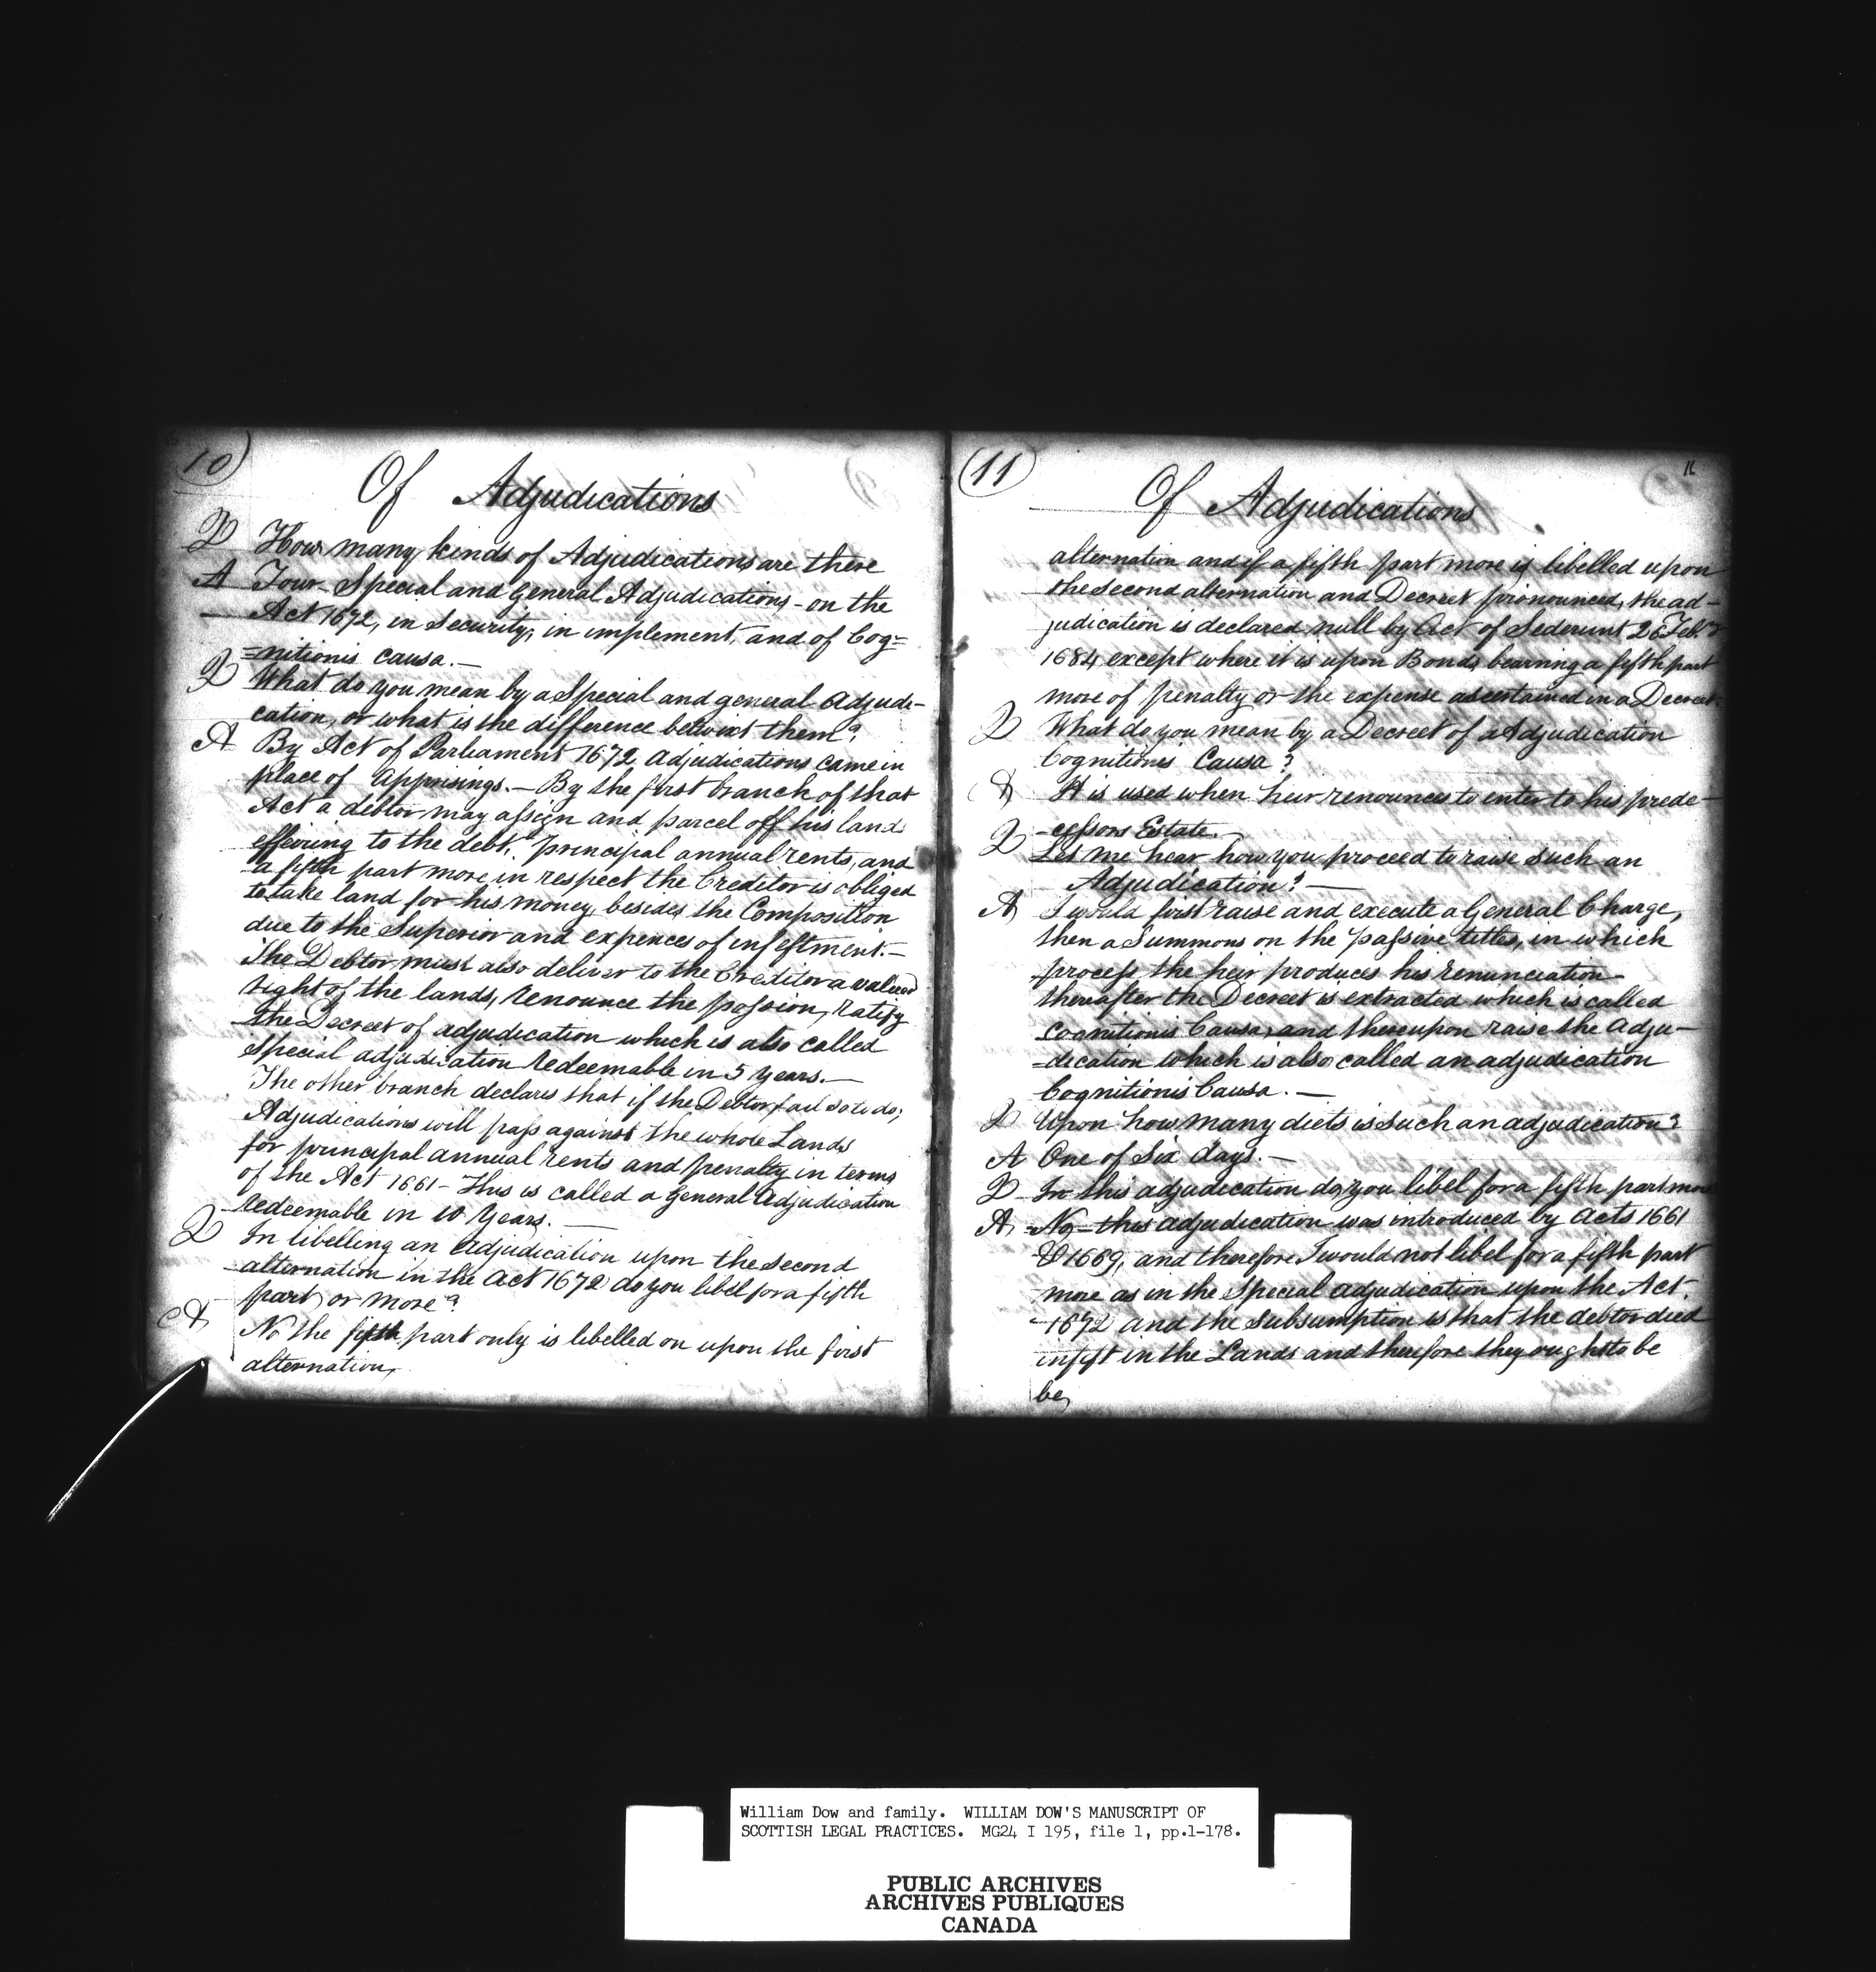 10
Of Adjudications
Q How many kinds of Adjudications are there
A Four Special and General Adjudications - on the
Act 1672, in Security, in implement, and of Cog=
=nitionis causa.—
Q What do you mean by a Special and general adjudi-
cation, or what is the difference betwixt them?
A By Act of Parliament 1672 adjudications came in
place of Apprisings.— By the first branch of that
Act a debtor may assign and parcel off his land
effeiring to the debt, principal annual rents, and
a fifth part more in respect the Creditor is obliged
to take land for his money, besides the Composition
due to the Superior and expences of infeftment.—
The Debtor must also deliver to the Creditor a valued
right of the lands, renounce the possion, ratify
the Decreet of adjudication which is also called
Special adjudication redeemable in 5 years.—
The other branch declares that if the Debtor fail so to do;
Adjudications will pass against the whole Lands
for principal annual rents and penalty in terms
of the Act 1661 - This is called a General Adjudication
redeemable in 10 Years.—
Q In libelling an adjudication upon the second
alternation in the Act 1672 do you libel for a fifth
part, or more?
A No the fifth part only is libelled on upon the first
alternation,
11
11
Of Adjudications
alternation and if a fifth part more is libelled upon
the second alternation and Decreet pronounced, the ad-
judication is declared null by Act of Sederunt 26 Feb.ry
1684 except where it is upon Bonds bearing a fifth part
more of penalty or the expense ascertained in a Decreet
Q What do you mean by a Decreet of Adjudication
Cognitionis Causa?
A It is used when heir renounces to enter to his prede-
-cessors Estate.—
Q Let me hear how you proceed to raise such an
Adjudication?—
A I would first raise and execute a General Charge,
then a Summons on the passive titles, in which
process the heir produces his renunciation
thereafter the Decreet is extracted which is called
Cognitionis Causa, and thereupon raise the adju-
=dication which is also called an adjudication
Cognitionis Causa.—
Q Upon how many diets is such an adjudication?
A One of Six days.—
Q In this adjudication do you libel for a fifth part more
A No - this adjudication was introduced by Acts 1661
& 1669, and therefore I would not libel for a fifth part
more as in the Special adjudication upon the Act
1672 and the Subsumption is that the debtor died
infeft in the Lands and therefore they ought to be
be,
William Dow and family. WILLIAM DOW'S MANUSCRIPT OF
SCOTTISH LEGAL PRACTICES. MG24 I 195, file 1, pp.1-178.
PUBLIC ARCHIVES
ARCHIVES PUBLIQUES
CANADA